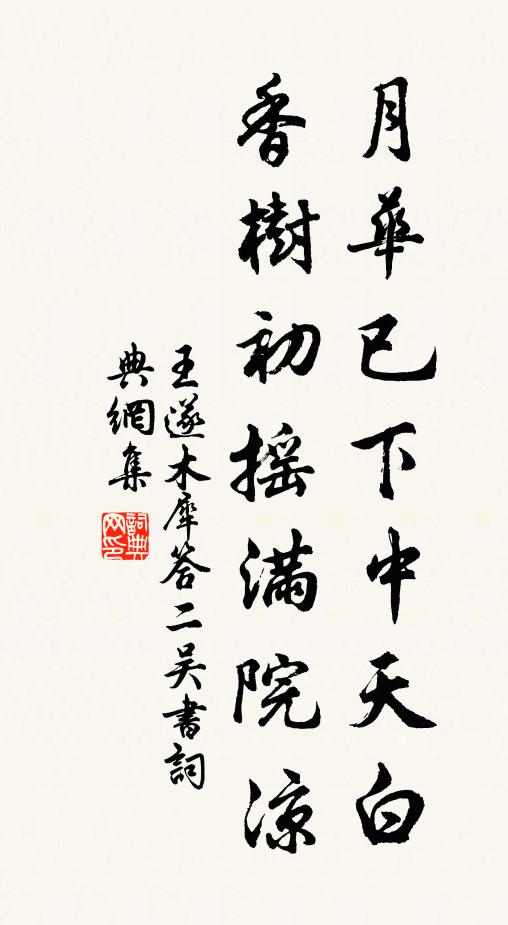 月華已下中天白
香樹初摇滿院涼
王遂木犀答二吴書詞
典網集
詞典網印